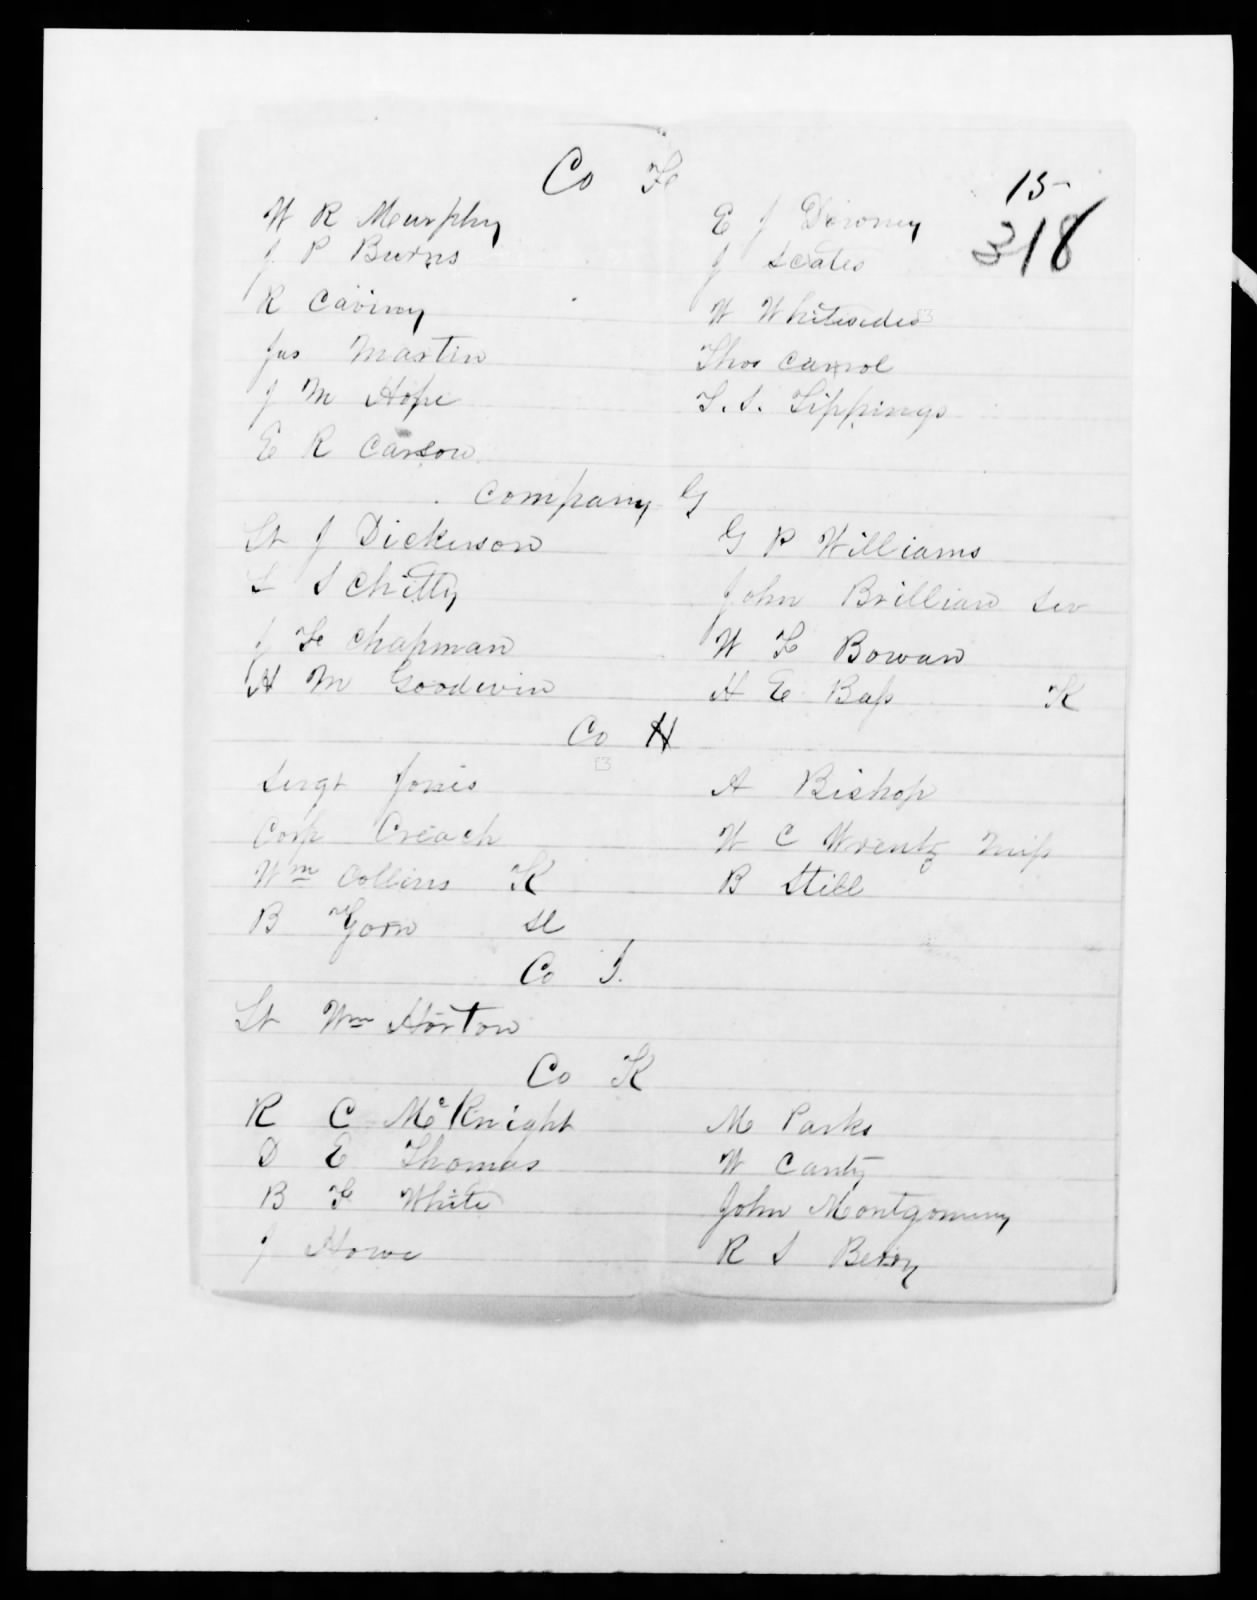 Co F
15
318
W R Murphy
J P Burns
R Caviny
Jas Martin
J M Hope
E R Carson
E J Downey
J Scates
W Whitesides
Thos Carrol
T. S. Tippings
Company G
Lt J Dickerson
L S Chitty
J F Chapman
H M Goodwin
G P Williams
John Brillian
W F Bowan
H E Bass K
Co H
Sergt Jones
Corp Creach
Wm Collins K
B Gorn
A Bishop
W C Wrentz Miss
B Still
Co I.
Lt Wm Horton
Co K
R C McKnight
D E Thomas
B F White
J Howe
M Parks
W Canty
John Montgomery
R S Berry